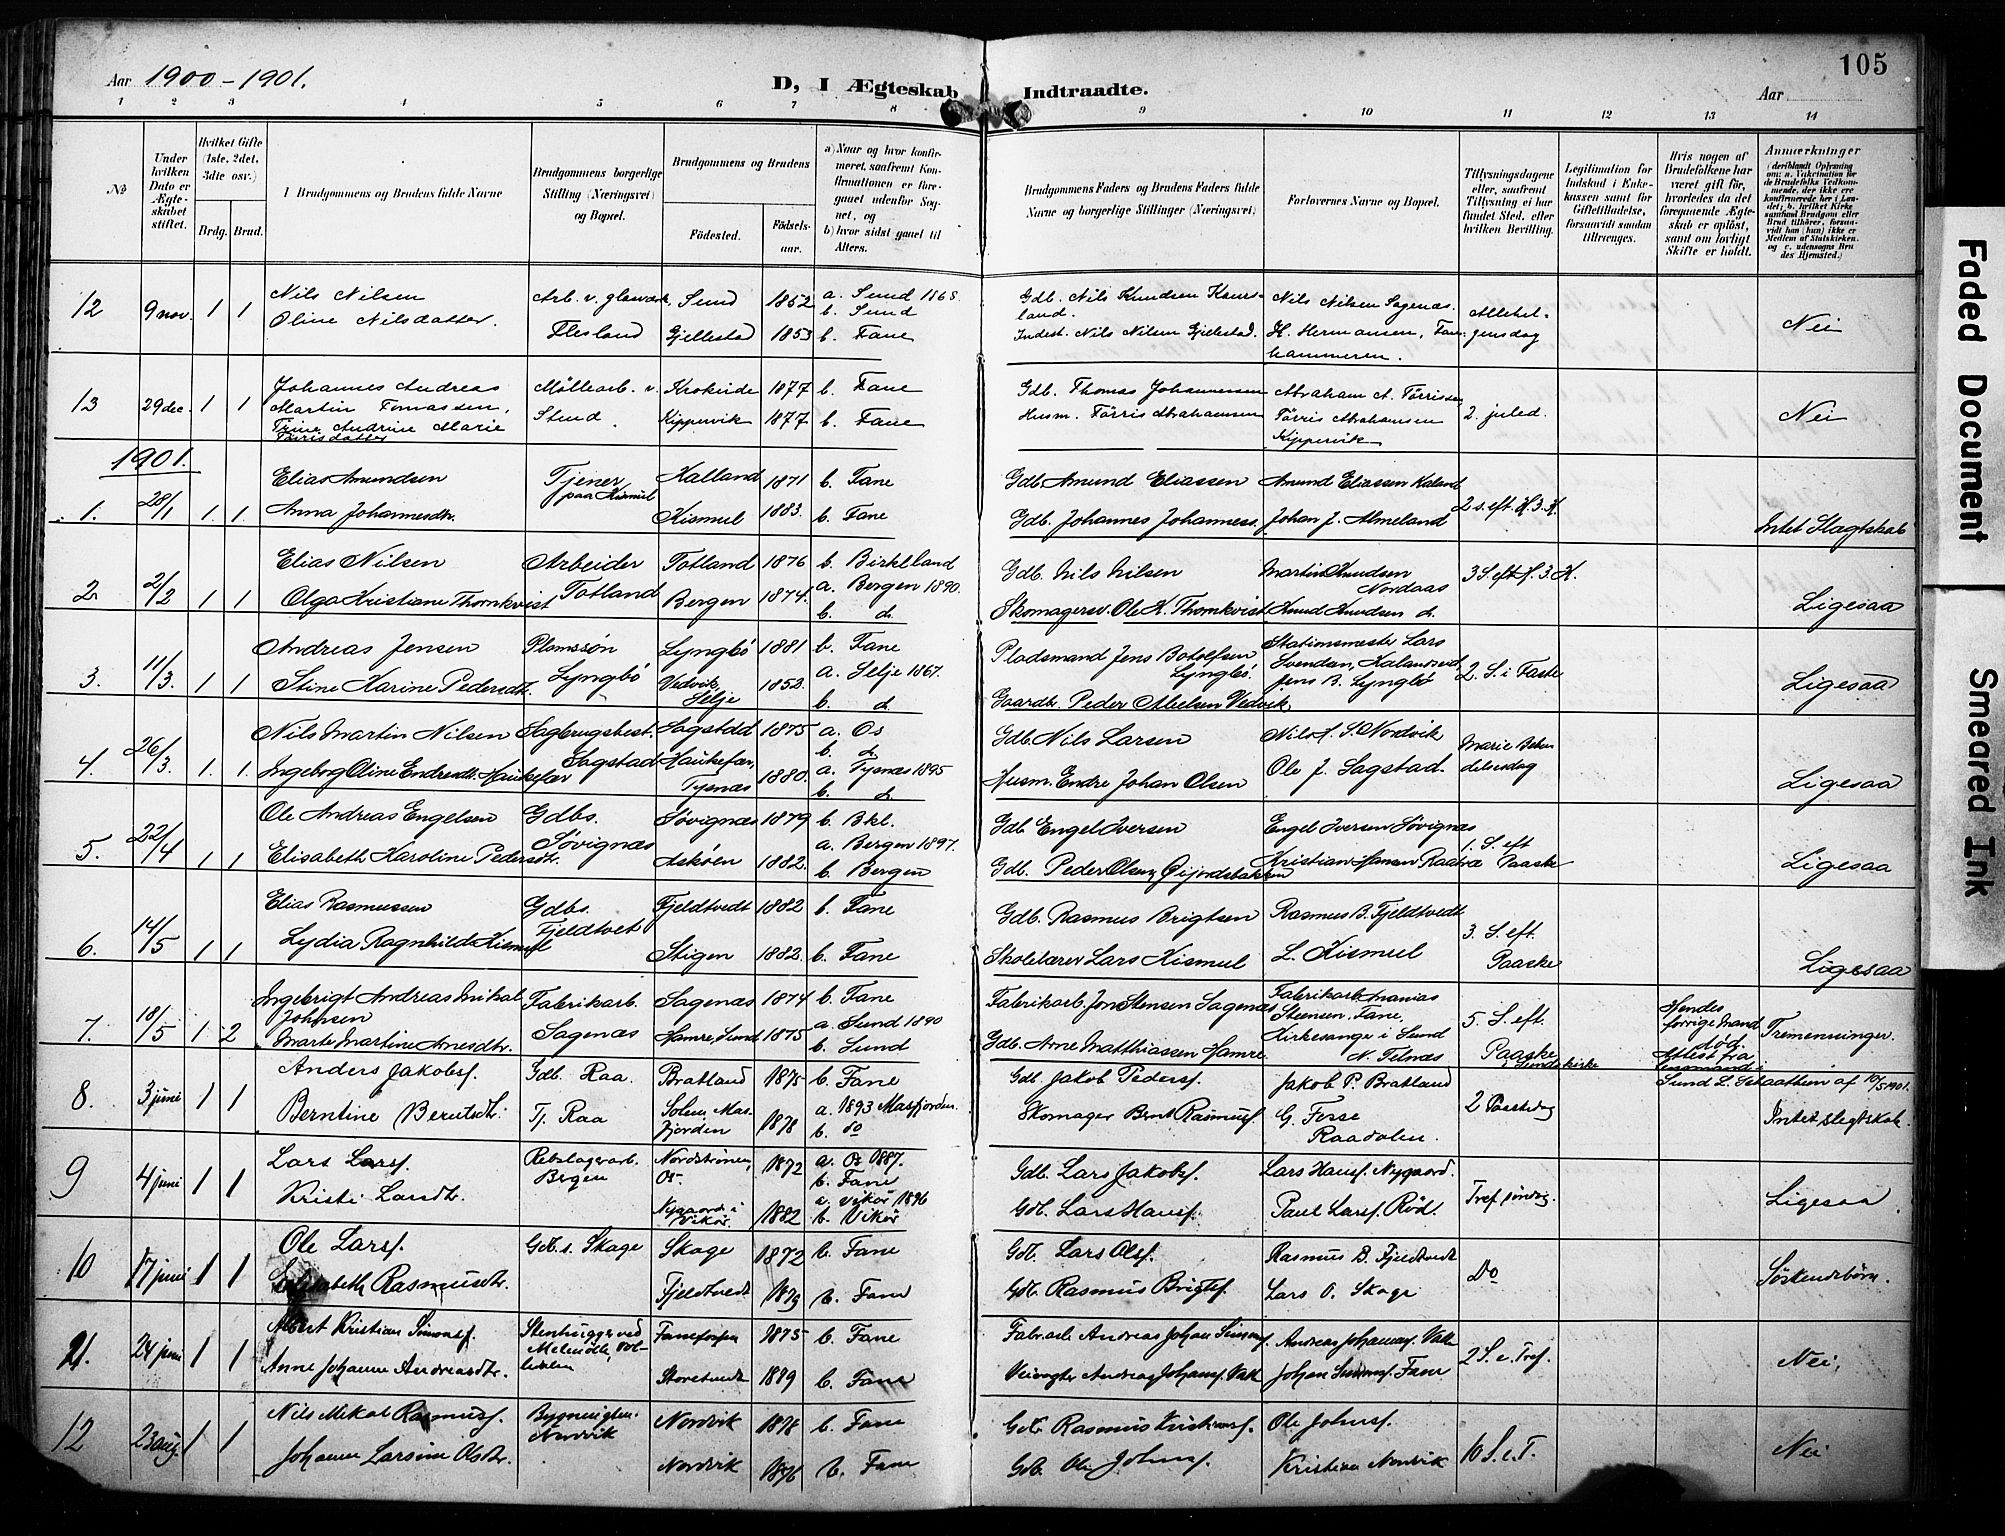 105
Aar 1900-1901.
D, I Ægteskab Indtraadte.
Aar
1 2 3 4 5 6 7 8 9 10 11 12 13 14
No
Under hvilken Dato er Ægteskabet stiftet.
Hvilket Gifte (1ste, 2det, 3die osv.)
Brdg. Brud.
Brudgommens og Brudens fulde Navne
Brudgommens borgerlige Stilling (Næringsvei) og Bopæl.
Brudgommens og Brudens
Fødested.
Fødselsaar.
a) Naar og hvor konfirmeret, saafremt Konfirmationen er foregaaet udenfor Sognet, og
b) hvor sidst gaaet til Alters.
Brudgommens Faders og Brudens Faders fulde Navne og borgerlige Stillinger (Næringsvei)
Forlovernes Navne og Bopæl.
Tillysningsdagene eller, saafremt Tillysning ei har fundet Sted, efter hvilken Bevilling.
Legitimation for Indskud i Enkekassen samt for Giftetilladelse, forsaavidt saadan tiltrænges.
Hvis nogen af Brudefolkene har været gift før, hvorledes da det foregaaende Ægteskab er opløst, samt om lovligt Skifte er holdt.
Anmærkninger
12 9 nov. 1 1 Nils Nilsen Arb. v. glasværk, Sund 1852 a. Sund 1868. b. Sund Gdb. Nils Knudsen Kaursland. Nils Nilsen Sagenæs. Allehel-
Oline Nilsdatter. Flesland Gjellestad 1853 b. Fane Indest. Nils Nilsen Gjellestad. H. Hermansen, Fanehammeren. gensdag Nei
13 29 dec. 1 1 Johannes Andreas Martin Tomassen, Møllearb. v. Krokeide 1877 b. Fane Gdb. Thomas Johannessen Abraham A. Tørrissen,
Trine Andrine Marie Tørrisdatter Stend. Kippervik 1877 b. Fane Husm. Tørris Abrahamsen Tørris Abrahamsen Kippervik 2. juled. Nei
1901.
1. 28/1 1. 1. Elias Amundsen Tjener paa Kismul Kalland 1871 b. Fane Gdb. Amund Eliassen Amund Eliassen Kaland
Anna Johannesdtr. Kismul 1883. b. Fane Gdb. Johannes Johanness. Johan J. Almeland 2 s. eft. H. 3. K. Intet Slagtskab
2 2/2 1 1 Elias Nilsen Arbeider Totland 1876 b. Birkeland Gdb. Nils Nilsen Martin Knudsen Nordaas 3 S. eft. H. 3. K.
Olga Kristiane Thornkvist Totland Bergen 1874. a. Bergen 1890. b. do. Skomagersv. Ole K. Thornkvist Knud Knudsen do. Ligesaa
3. 11/3. 1 1 Andreas Jensen Pladssøn Lyngbø 1881 b. Fane Pladsmand Jens Botolfsen Lyngbø. Stationsmester Lars Svendsen, Kalandseid,
Stine Karine Pedersdtr. Lyngbø Vedvik, Selje 1853. a. Selje 1867. b. do. Gaardbr. Peder Abelsen Vedvik Jens B. Lyngbø 2. S. i Faste Ligesaa
4. 26/3. 1. 1. Nils Martin Nilsen Sagbrugsbest. Sagstad 1875 a. Os b. do. Gdb. Nils Larsen Nils A. S. Nordvik Marie Beku
Ingeborg Oline Endresdtr. Haukefær Sagstad Haukefær, Tysnæs 1880. a. Tysnæs 1895 b. do. Husm. Endre Johan Olsen Ole J. Sagstad. delsesdag Ligesaa
5. 22/4 1 1 Ole Andreas Engelsen Gdbs. Søvignæs 1879 b. Bkl. Gdb. Engel Iversen Engel Iversen Søvignæs 1. S. eft
Elisabeth Karoline Pedersdtr. Søvignæs Askøen 1882. a. Bergen 1897. b. Bergen Gdb. Peder Olsen, Øijordsbakken Kristian Hansen Raa Paaske Ligesaa
6. 14/5 1 1 Elias Rasmussen Gdbs. Fjeldtvedt 1882 b. Fane Gdb. Rasmus Brigtsen Rasmus B. Fjeldtvedt 3. S. eft.
Lydia Ragnhilda Kismul Fjeldtvet Stigen 1882. b. Fane Skolelærer Lars Kismul L. Kismul Paaske Ligesaa
7. 18/5 1 2 Ingebrigt Andreas Mikal Johnsen Fabrikarb. Sagenæs 1874 b. Fane Fabrikarb. Jon Stensen Sagenæs Fabrikarb. Ananias Steensen, Fane, 5. S. eft. Hendes forrige Mand død. Tremenninger.
Marte Martine Arnesdtr. Sagenæs Hamre, Sund 1875 a. Sund 1890 b. Sund Gdb. Arne Matthiassen Hamre Kirkesanger i Sund N. Telnæs Paaske i Sunds kirke Attest fra Lensmand i Sund af 10/5 1901.
8. 3 juni 1 1 Anders Jakobs. Gdb. Raa Bratland 1875 b. Fane Gdb. Jakob Peders. Jakob P. Bratland
Berntine Berntsdtr. Tj. Raa Solem, Masfjorden 1878 a. 1893 Masfjorden. b. do Skomager Bernt Rasmus. G. Fosse Raadalen. 2 Paaskedag Intet slegtskab
9 4 juni 1 1 Lars Lars. Rebslagerarb. Bergen Nordstrønen, Os 1872 a. Os 1887. b. Fane Gdb. Lars Jakobs. Lars Hans. Nygaard.
Kristi Larsdtr. Nygaard i Vikør. 1882 a. Vikør 1896 b. Vikør Gdb. Lars Hans. Paul Lars. Rød. Tref. søndag. Ligesaa
10 17 juni 1 1 Ole Lars. Gdb. s. Skage Skage 1872 b. Fane Gdb. Lars Ols. Rasmus B. Fjeldtvedt
Elisabeth Rasmusdtr. Fjeldtvedt 1879 b. Fane Gdb. Rasmus Brigts. Lars O. Skage Do Søskendebørn.
11. 24 juni 1 1 Albert Kristian Simons. Stenhugger ved Fanefossen 1875 b. Fane Fabr.arb. Andreas Johan Simons. Andreas Johannes. Vatle
Anne Johanne Andreasdtr. Storetvedt 1889 b. Fane Veivogter Andreas Johans. Vatle Johan Simons. Fane 2 S. e. Tref. Nei,
12 23 aug. 1 1 Nils Mikal Rasmus. Nordvik Nordvik 1878 b. Fane Gdb. Rasmus Kristians. Ole Johns.
Johanne Larsine Olsdtr. Nordvik 1876 b. Fane Gdb. Ole Johns. Kristian Nordvik 10 S. e. T. Nei
Faded Document
Smeared Ink